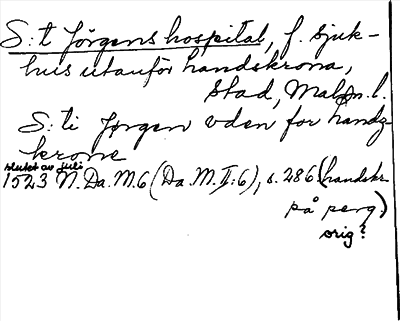 S:t Jörgens hospital, f. sjuk-
hus utanför Landskrona,
stad, Malm. l.
S: ti Jørgen vden for landz
krone
slutet av juli
1523 N. Da. M. 6 (Da. M. II: 6), s. 286 (handskr.
på perg)
orig?